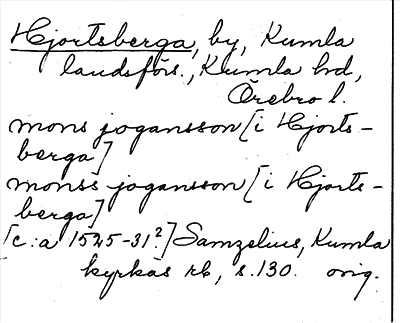 Hjortsberga, by, Kumla
landsförs., Kumla hd,
Örebro l.
mons jogansson [i Hjorts-
berga]
monss jogansson [i Hjorts-
berga]
[c:a 1525-31?] Samzelius, Kumla
kyrkas rb, s.130. orig.